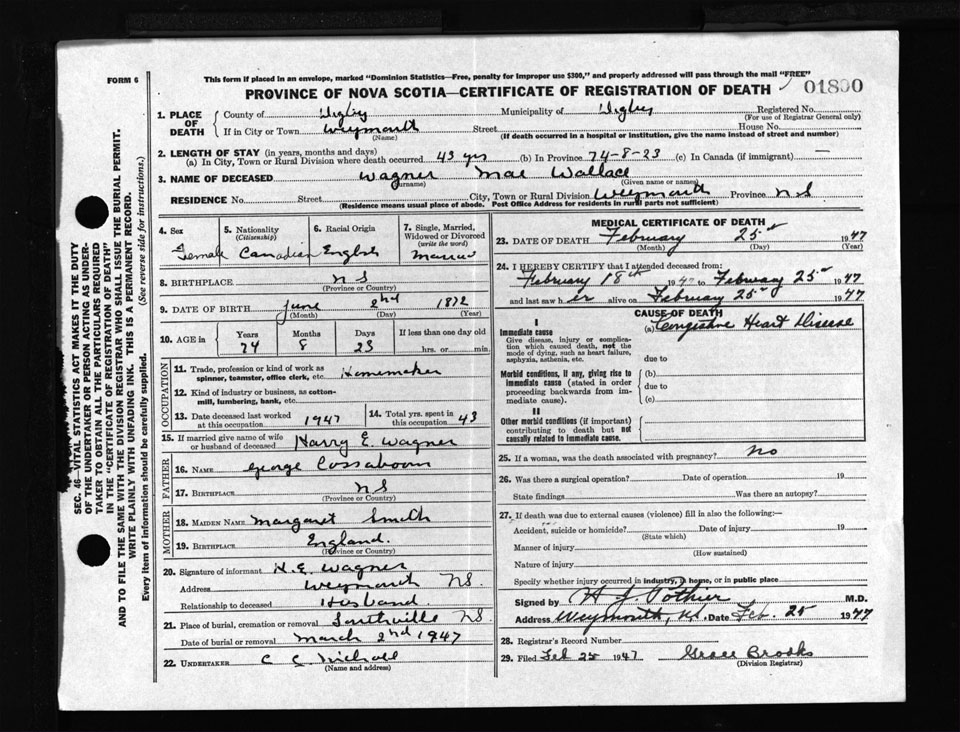 FORM 6
This form if placed in an envelope, marked "Dominion Statistics—Free, penalty for improper use $300," and properly addressed will pass through the mail "FREE"
PROVINCE OF NOVA SCOTIA—CERTIFICATE OF REGISTRATION OF DEATH 01800
1. PLACE OF DEATH County of Digby Municipality of Digby Registered No.
(For use of Registrar General only)
If in City or Town Weymouth Street House No.
(Name) (If death occurred in a hospital or institution, give the name instead of street and number)
2. LENGTH OF STAY (in years, months and days)
(a) In City, Town or Rural Division where death occurred 43 yrs (b) In Province 74-8-23 (c) In Canada (if immigrant) —
3. NAME OF DECEASED Wagner Mae Wallace
(Surname) (Given name or names)
RESIDENCE No. Street City, Town or Rural Division Weymouth Province N S
(Residence means usual place of abode. Post Office Address for residents in rural parts not sufficient)
4. Sex 5. Nationality (Citizenship) 6. Racial Origin 7. Single, Married, Widowed or Divorced (write the word)
Female Canadian English Married
8. BIRTHPLACE N S
(Province or Country)
9. DATE OF BIRTH June 2nd 1872
(Month) (Day) (Year)
10. AGE in Years Months Days If less than one day old
74 8 23 hrs. or min.
OCCUPATION
11. Trade, profession or kind of work as spinner, teamster, office clerk, etc. Homemaker
12. Kind of industry or business, as cotton-mill, lumbering, bank, etc.
13. Date deceased last worked at this occupation 1947 14. Total yrs. spent in this occupation 43
15. If married give name of wife or husband of deceased Harry E. Wagner
FATHER
16. NAME George Cossaboom
17. BIRTHPLACE N S
(Province or Country)
MOTHER
18. MAIDEN NAME Margaret Smith
19. BIRTHPLACE England.
(Province or Country)
20. Signature of informant H. E. Wagner
Address Weymouth NS.
Relationship to deceased Husband
21. Place of burial, cremation or removal Southville NS
Date of burial or removal March 2nd 1947
22. UNDERTAKER C C
(Name and address)
MEDICAL CERTIFICATE OF DEATH
23. DATE OF DEATH February 25 1947
(Month) (Day) (Year)
24. I HEREBY CERTIFY that I attended deceased from:
February 18th 1947 to February 25 1947
and last saw her alive on February 25 1947
CAUSE OF DEATH
I
Immediate cause (a) Congestive Heart Disease
Give disease, injury or complication which caused death, not the mode of dying, such as heart failure, asphyxia, asthenia, etc.
due to
Morbid conditions, if any, giving rise to immediate cause (stated in order proceeding backwards from immediate cause).
(b)
due to
(c)
II
Other morbid conditions (if important) contributing to death but not causally related to immediate cause.
25. If a woman, was the death associated with pregnancy? No
26. Was there a surgical operation? Date of operation 19
State findings Was there an autopsy?
27. If death was due to external causes (violence) fill in also the following:—
Accident, suicide or homicide? Date of injury 19
(State which)
Manner of injury
(How sustained)
Nature of injury
Specify whether injury occurred in industry, in home, or in public place
Signed by H J Pothier M.D.
Address Weymouth, NS. Date Feb 25 1947
28. Registrar's Record Number
29. Filed Feb 25 1947 Grace Brooks
(Division Registrar)
SEC. 46—VITAL STATISTICS ACT MAKES IT THE DUTY
OF THE UNDERTAKER OR PERSON ACTING AS UNDERTAKER TO OBTAIN ALL THE PARTICULARS REQUIRED
IN THE "CERTIFICATE OF REGISTRATION OF DEATH"
AND TO FILE THE SAME WITH THE DIVISION REGISTRAR WHO SHALL ISSUE THE BURIAL PERMIT.
WRITE PLAINLY WITH UNFADING INK. THIS IS A PERMANENT RECORD.
Every item of information should be carefully supplied. (See reverse side for instructions.)